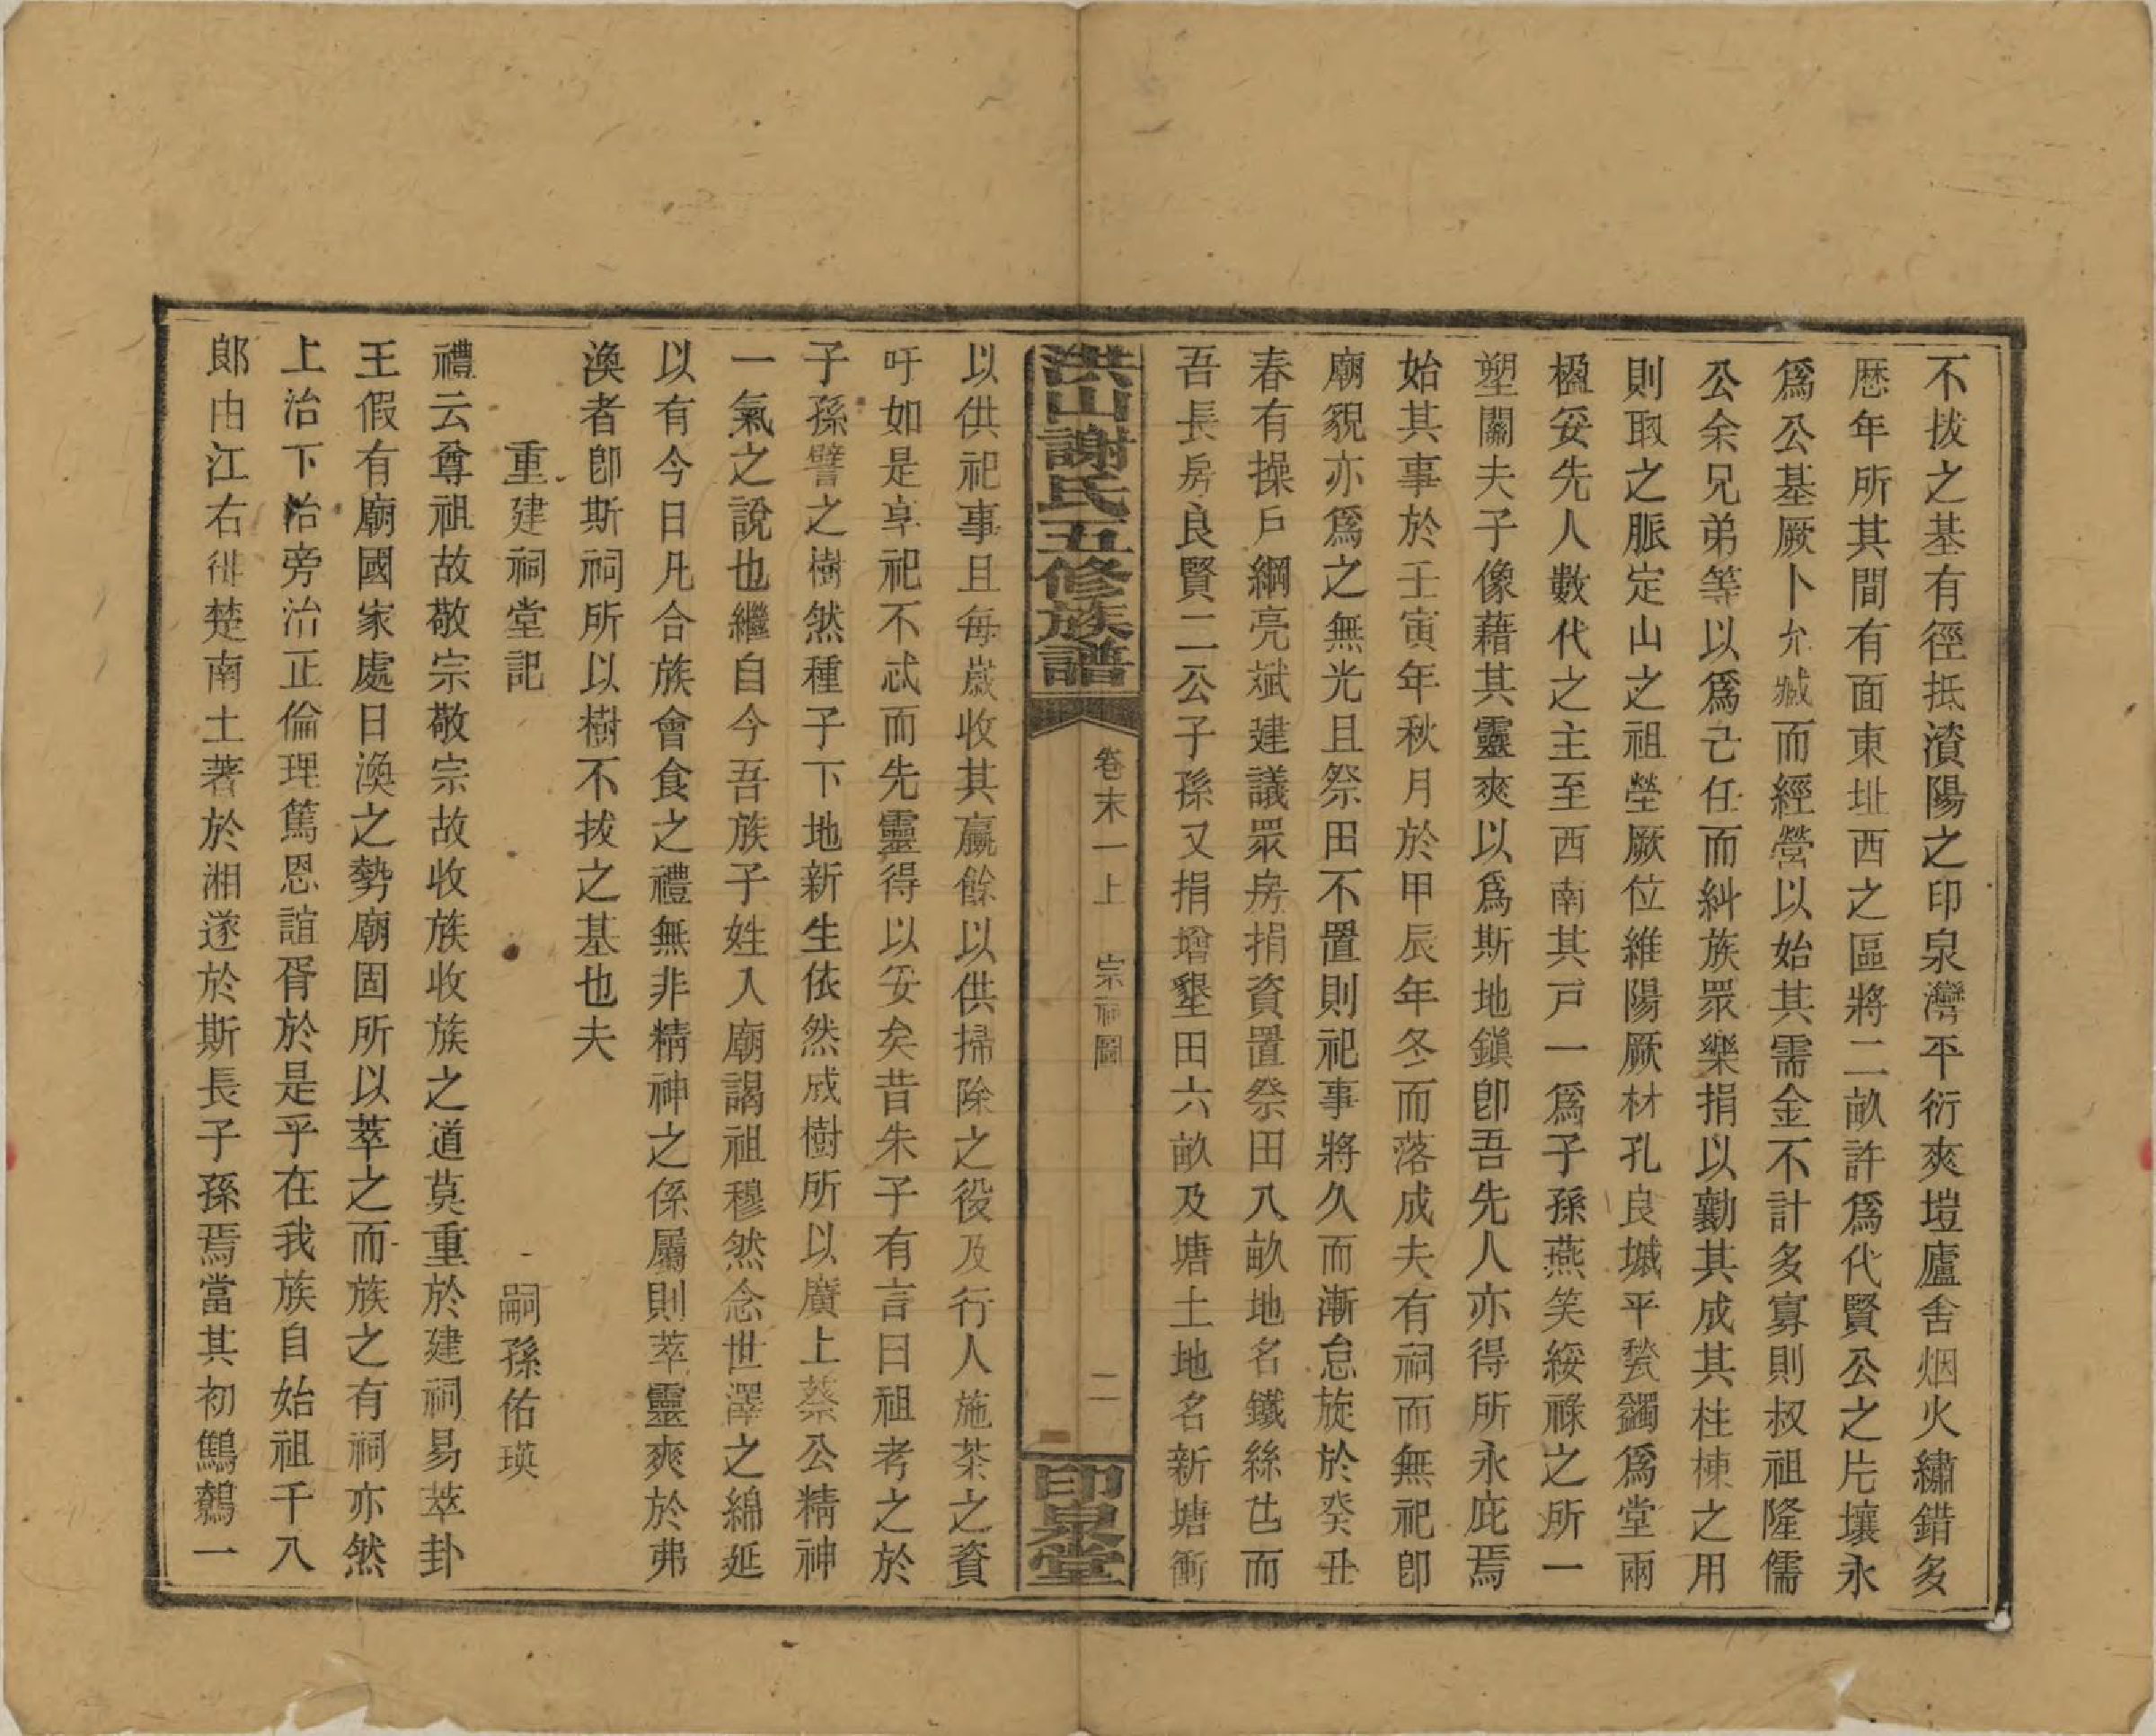 不拔之基有徑抵濱陽之印泉灣平衍爽塏廬舍烟火繡錯多
歷年所其間有面東址西之區將二畝許爲代賢公之片壤永
爲公基厥卜允臧而經營以始其需金不計多寡則叔祖隆儒
公余兄弟等以爲己任而糾族眾樂捐以勷其成其柱棟之用
則取之脈定山之祖塋厥位維陽厥材孔良墄平甃蠲爲堂兩
楹妥先人數代之主至西南其戸一爲子孫燕笑綏祿之所一
塑關夫子像藉其靈爽以爲斯地鎭卽吾先人亦得所永庇焉
始其事於壬寅年秋月於甲辰年冬而落成夫有祠而無祀卽
廟貌亦爲之無光且祭田不置則祀事將久而漸怠旋於癸丑
春有操戶綱亮斌建議眾房捐資置祭田八畝地名鐵絲㐌而
吾長房良賢二公子孫又捐增墾田六畝及塘土地名新塘衝
洪山謝氏五修族譜
卷末一上 宗祠圖
二
印泉堂
以供祀事且每嵗收其贏餘以供掃除之役及行人施茶之資
吁如是享祀不忒而先靈得以安矣昔朱子有言曰祖考之於
子孫譬之樹然種子下地新生依然成樹所以廣上蔡公精神
一氣之說也繼自今吾族子姓入廟謁祖穆然念世澤之綿延
以有今日凡合族會食之禮無非精神之係屬則萃靈爽於弗
渙者卽斯祠所以樹不拔之基也夫
重建祠堂記
嗣孫佑瑛
禮云尊祖故敬宗敬宗故收族收族之道莫重於建祠易萃卦
王假有廟國家處日渙之勢廟固所以萃之而族之有祠亦然
上治下治旁治正倫理篤恩誼胥於是乎在我族自始祖千八
郎由江右徙楚南土著於湘遂於斯長子孫焉當其初鷦鷯一